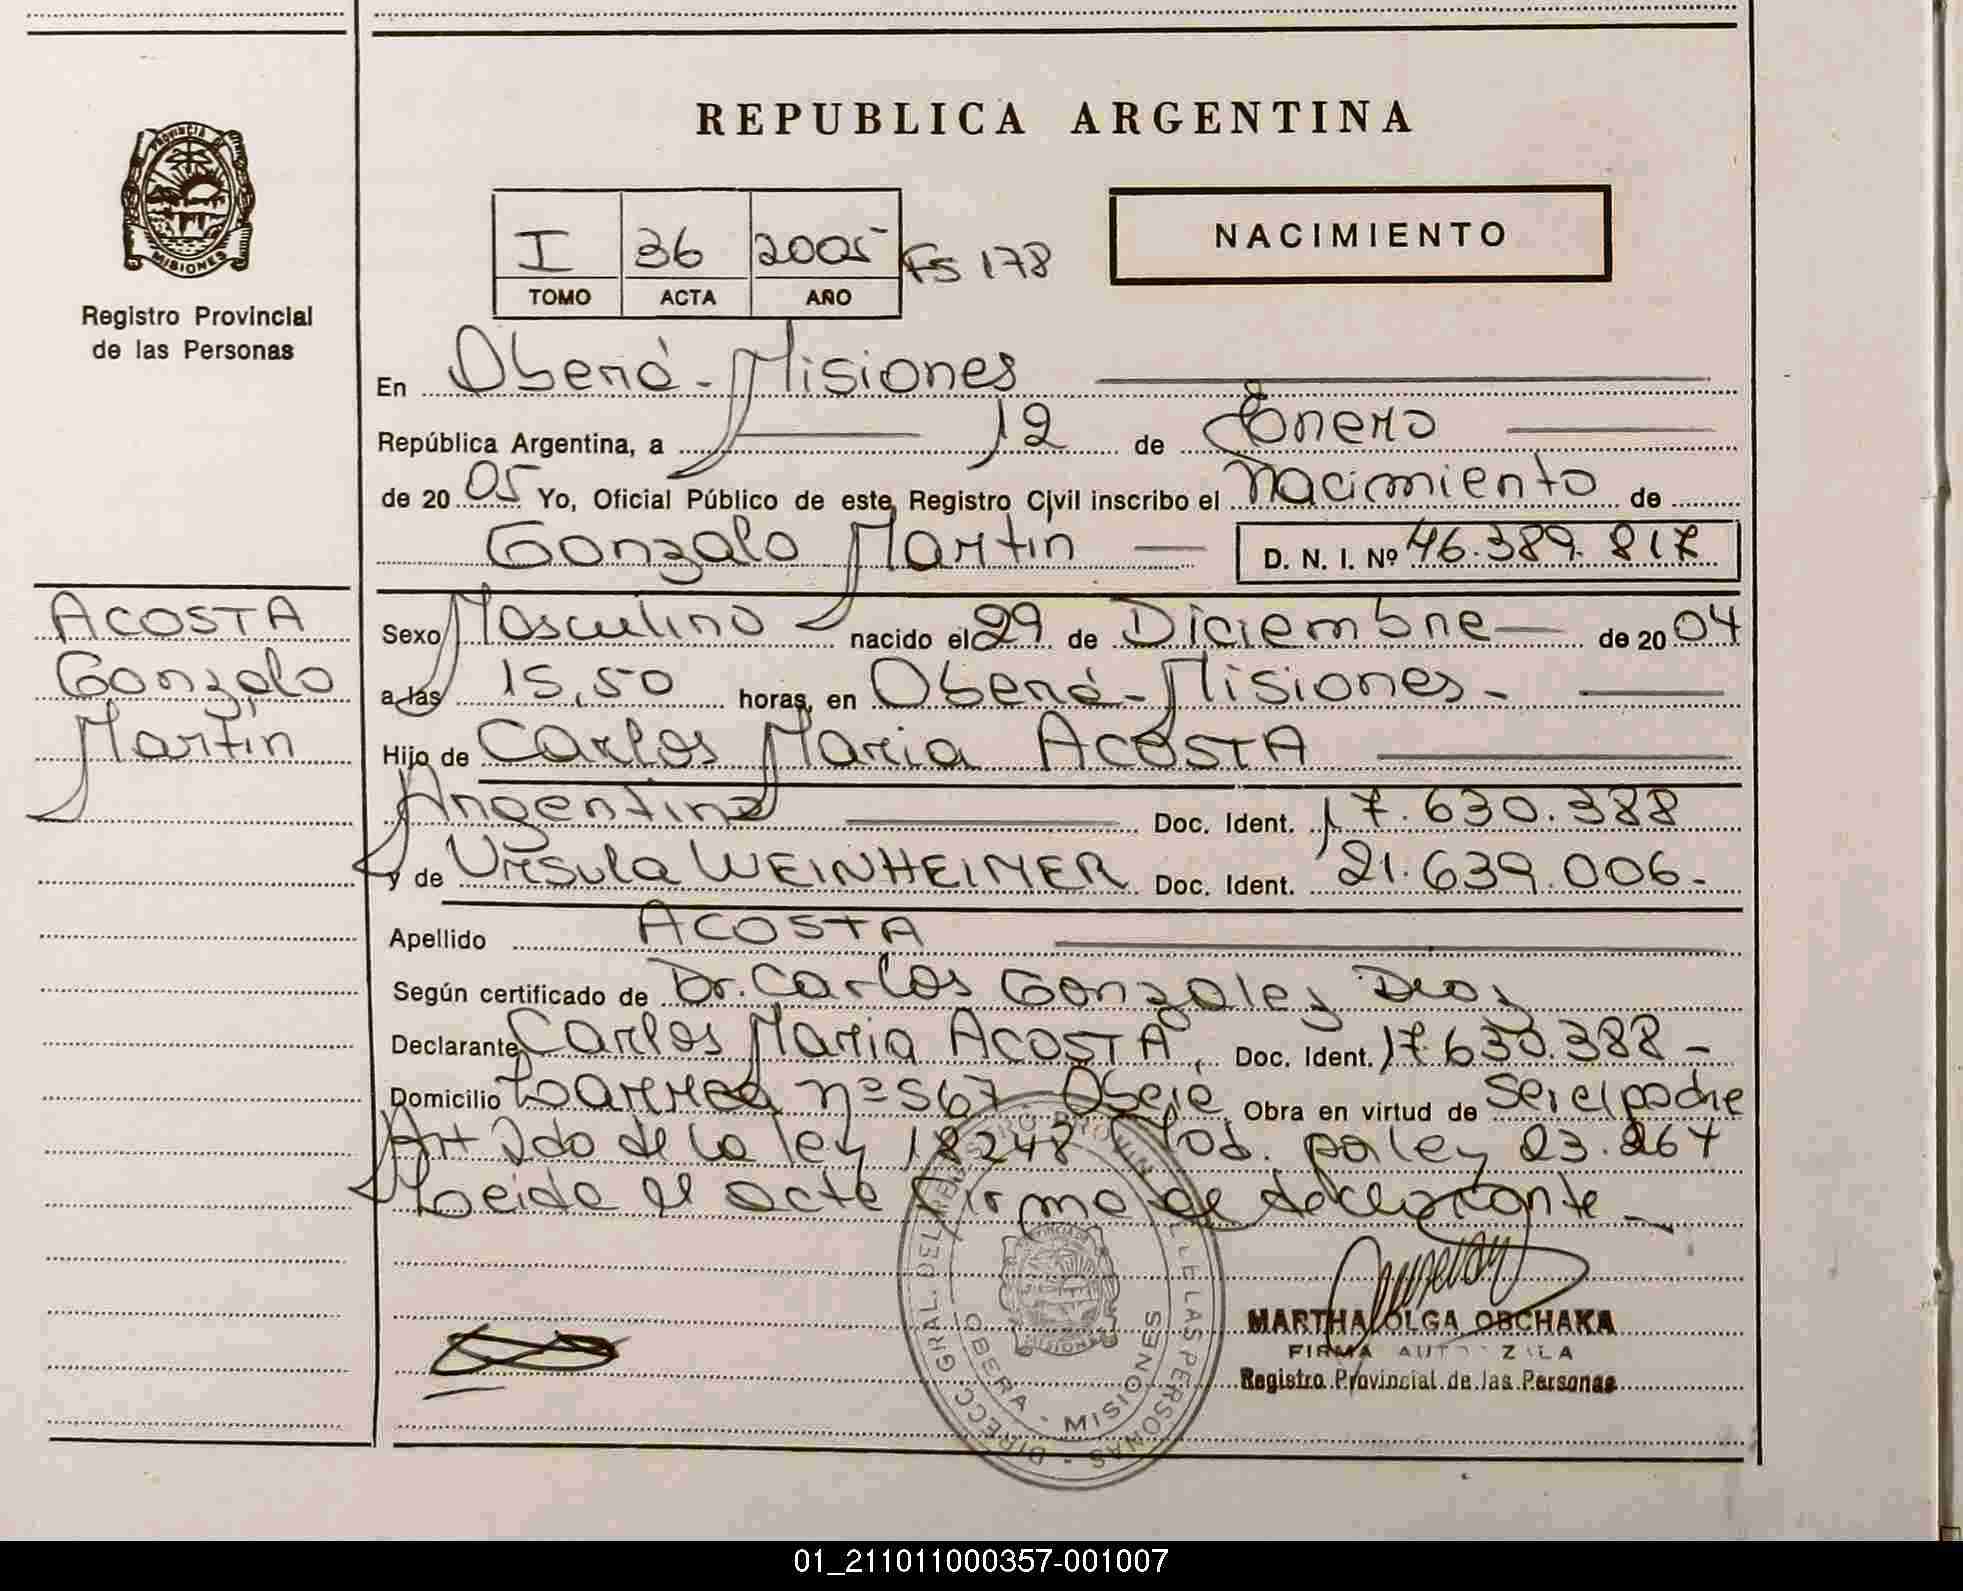 REPUBLICA ARGENTINA
PROVINCIA DE
MISIONES
Registro Provincial
de las Personas
I 36 2005 Fs 178
TOMO ACTA AÑO
NACIMIENTO
En Oberá - Misiones
República Argentina, a 12 de Enero
de 20 05 Yo, Oficial Público de este Registro Civil inscribo el Nacimiento de
Gonzalo Martin D. N. I. Nº 46.389.817
ACOSTA
Gonzalo
Martin
Sexo Masculino nacido el 29 de Diciembre de 20 04
a las 15,50 horas, en Oberá - Misiones -
Hijo de Carlos Maria ACOSTA
Argentina Doc. Ident. 17.630.388
y de Ursula WEINHEIMER Doc. Ident. 21.639.006.-
Apellido ACOSTA
Según certificado de Dr. Carlos Gonzales
Declarante Carlos Maria ACOSTA, Doc. Ident. 17.630.388 -
Domicilio nº 567 Obra en virtud de ser el padre
Art 2do de la ley 18248 Mod. por ley 23.264
Leida el acta firma el declarante -
DIRECC GRAL. DEL REGISTRO PROVIN DE LAS PERSONAS
OBERA - MISIONES
MARTHA OLGA OBCHAKA
FIRMA AUTORIZADA
Registro Provincial de las Personas
01_211011000357-001007